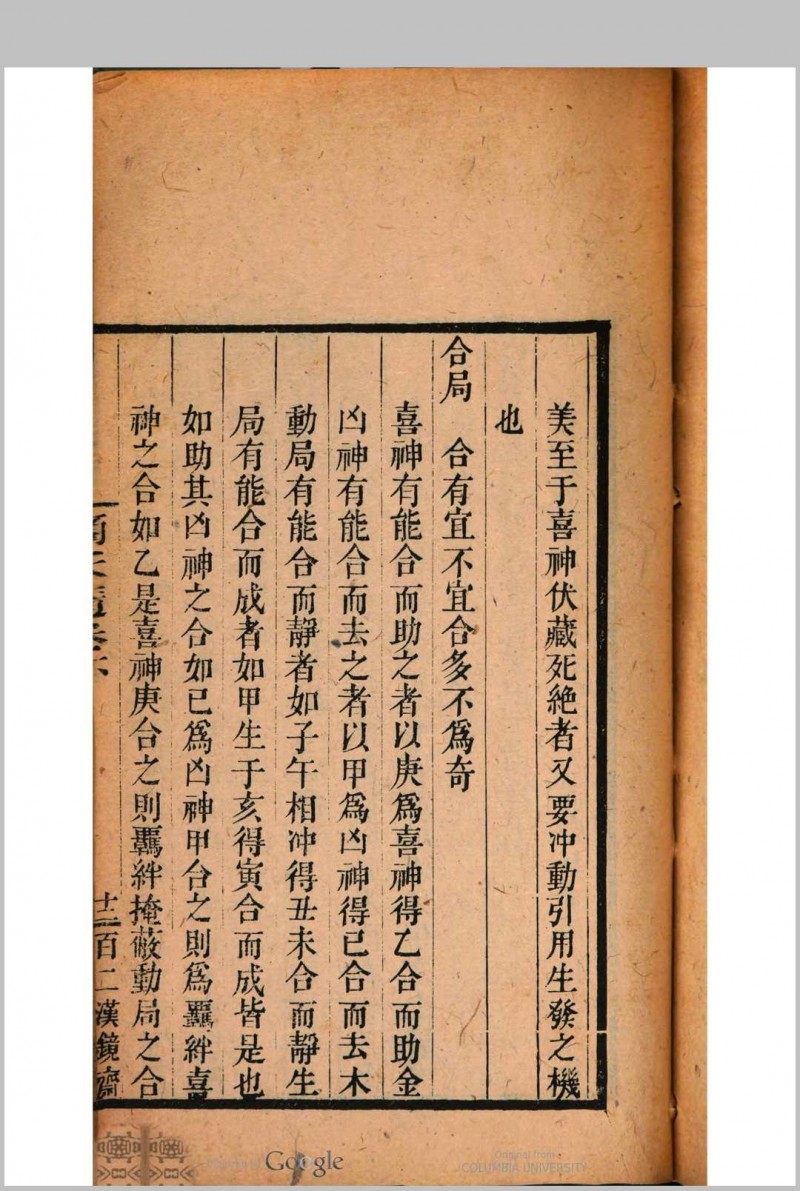 美至于喜神伏藏死絶者又要冲動引用生發之機
也
合局　合有宜不宜合多不爲奇
喜神有能合而助之者以庚爲喜神得乙合而助金
凶神有能合而去之者以甲爲凶神得已合而去木
動局有能合而靜者如子午相冲得丑未合而靜生
局有能合而成者如甲生于亥得寅合而成皆是也
如助其凶神之合如已爲凶神甲合之則爲羈絆喜
神之合如乙是喜神庚合之則羈絆掩蔽動局之合
十二 百二漢鏡齋
Google
Original from
COLUMBIA UNIVERSITY